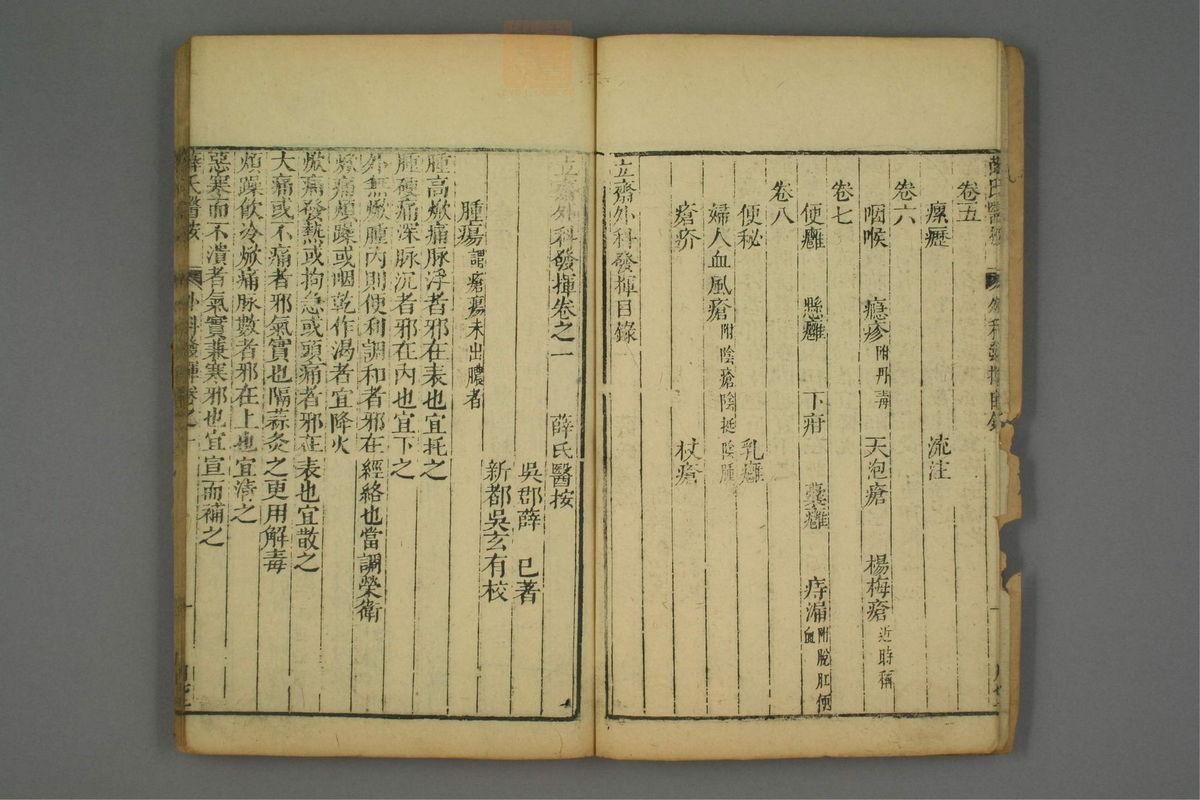 卷五
瘰癧 流注
卷六
咽喉 癮疹附丹毒 天泡瘡 楊梅瘡近時稱
卷七
便癰 懸癰 下疳 囊癰 痔漏附脫肛便血
卷八
便秘 乳癰
婦人血風瘡附陰瘡陰挺陰腫
瘡疥 杖瘡
立齋外科發揮目錄
立齋外科發揮卷之一 薛氏醫按
吳郡薛 已著
新都吳玄有校
腫瘍謂瘡瘍未出膿者
腫高焮痛脉浮者邪在表也宜托之
腫硬痛深脉沉者邪在內也宜下之
外無焮腫內則便利調和者邪在經絡也當調榮衛
焮痛煩躁或咽乾作渴者宜降火
焮痛發熱或拘急或頭痛者邪在表也宜散之
大痛或不痛者邪氣實也隔蒜灸之更用解毒
煩躁飲冷焮痛脉數者邪在上也宜清之
惡寒而不潰者氣實兼寒邪也宜宣而補之
薛氏醫按 外科發揮卷之一 一